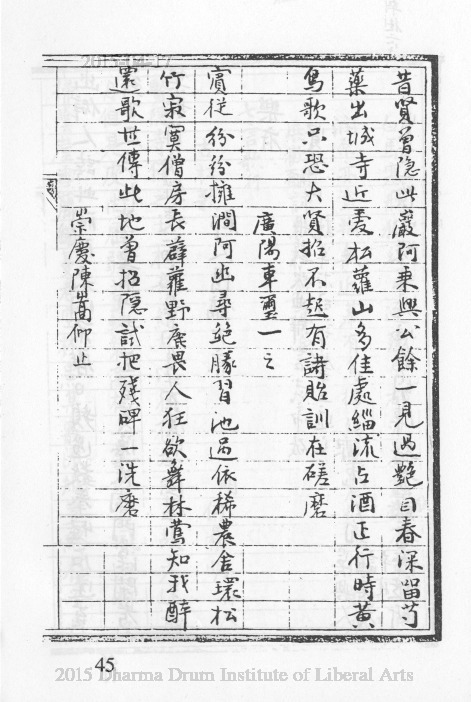 昔賢曾隐此巖阿乗興公餘一見過艷目春深留芍
藥出城寺近愛松蘿山多佳處緇流占酒正行時黄
鳥歌只恐大賢招不起有詩貽訓在磋磨
廣陽車璽一之
賓従紛紛擁澗阿幽尋絶勝習池過依稀農舍環松
竹寂寞僧房長薜蘿野鹿畏人狂欲舞林鶯知我醉
還歌世傳此地曾招隠試把殘碑一洗磨
崇慶陳嵩仰止
45
2015 Dharma Drum Institute of Liberal Arts